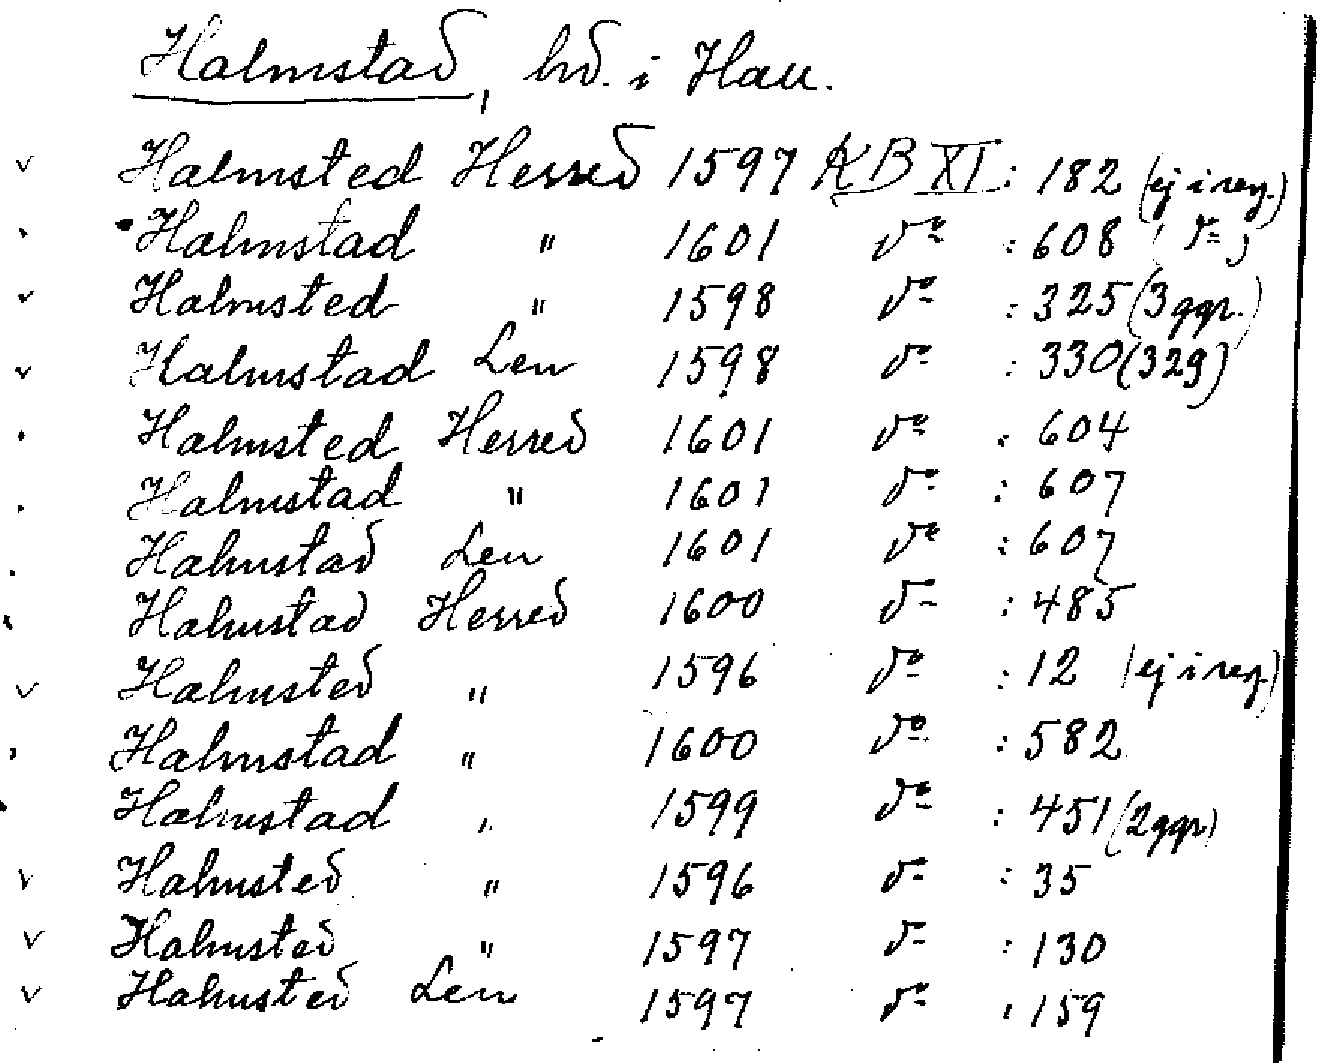 Halmstad, hd. i Hall.
v Halmsted Herred 1597 KB XI: 182 (ej i reg.)
Halmstad " 1601 do : 608 ( do )
v Halmsted " 1598 do : 325 (3 ggr.)
v Halmstad Len 1598 do : 330 (329)
Halmsted Herred 1601 do : 604
Halmstad " 1601 do : 607
Halmstad Len 1601 do : 607
Halmstad Herred 1600 do : 485
v Halmsted " 1596 do : 12 (ej i reg.)
Halmstad " 1600 do : 582
Halmstad " 1599 do : 451 (2 ggr)
v Halmsted " 1596 do : 35
v Halmsted " 1597 do : 130
v Halmsted Len 1597 do : 159